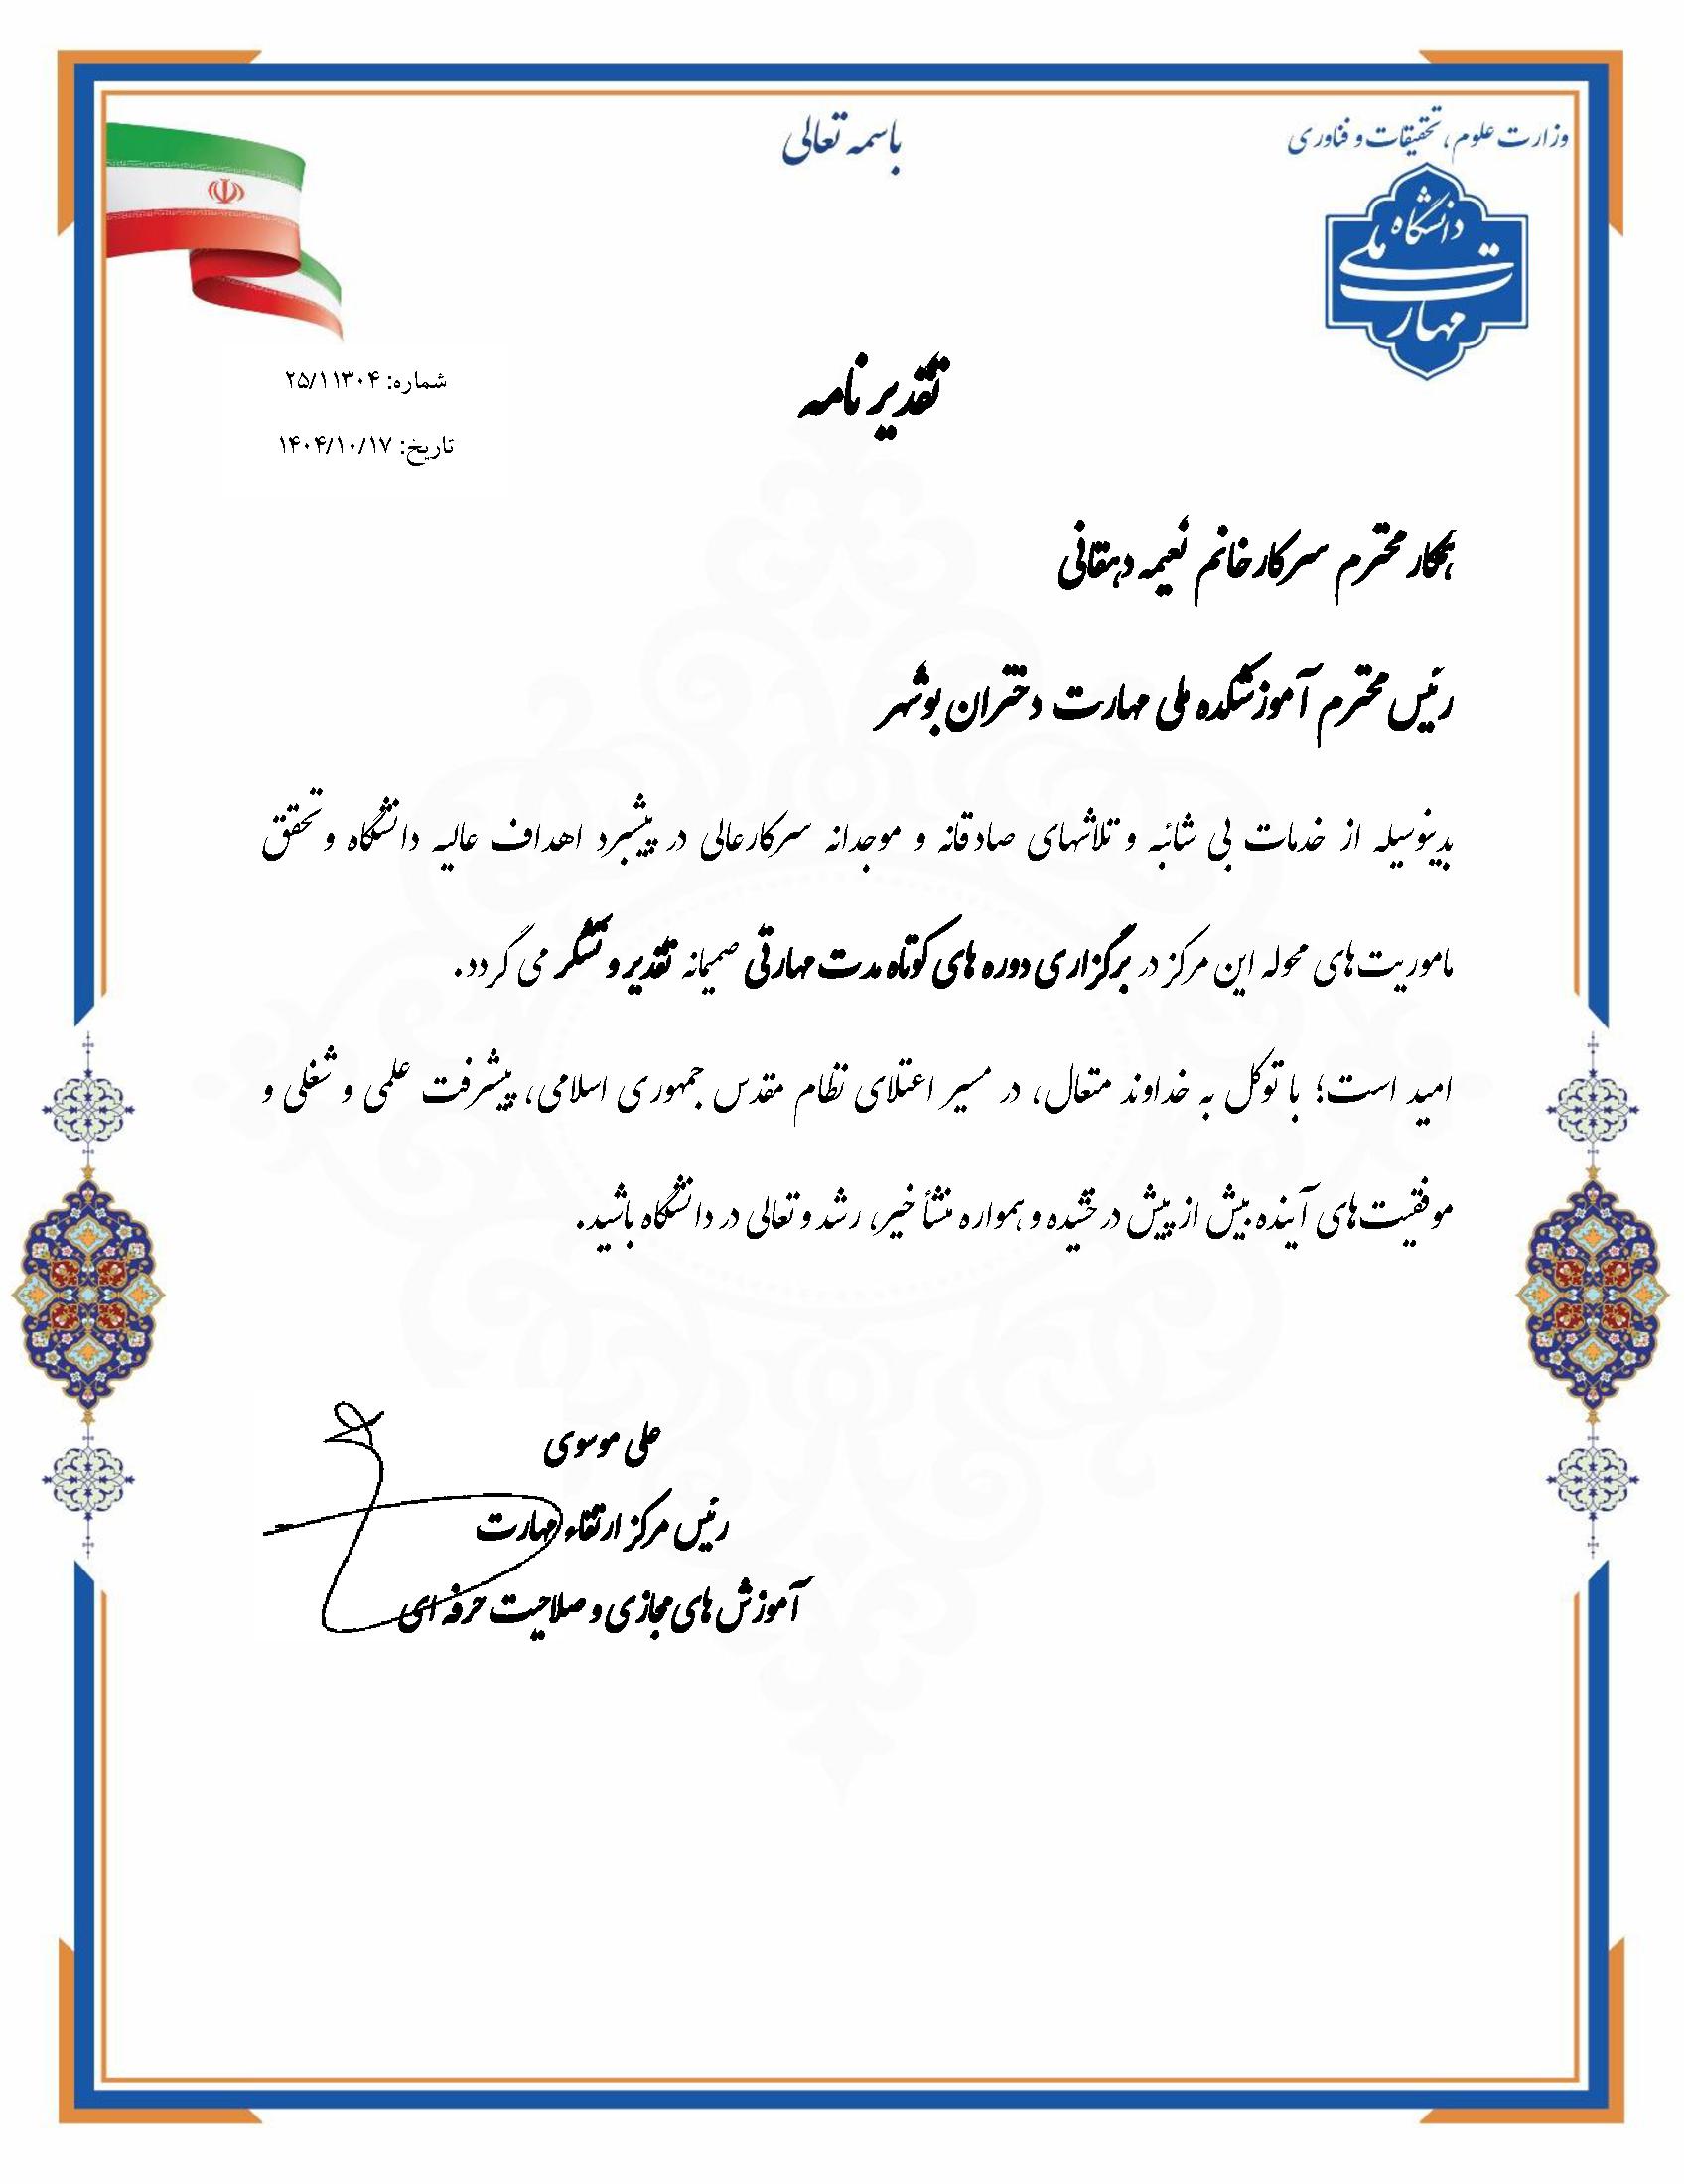 باسمه تعالی
وزارت علوم، تحقیقات و فناوری
دانشگاه ملی مهارت
شماره: ۲۵/۱۱۳۰۴
تاریخ: ۱۴۰۴/۱۰/۱۷
تقدیر نامه
همکار محترم سرکار خانم نعیمه دهقانی
رئیس محترم آموزشکده ملی مهارت دختران بوشهر
بدینوسیله از خدمات بی شائبه و تلاشهای صادقانه و موجدانه سرکارعالی در پیشبرد اهداف عالیه دانشگاه و تحقق
ماموریت‌های محوله این مرکز در برگزاری دوره های کوتاه مدت مهارتی صمیمانه تقدیر و تشکر می گردد.
امید است؛ با توکل به خداوند متعال، در مسیر اعتلای نظام مقدس جمهوری اسلامی، پیشرفت علمی و شغلی و
موفقیت‌های آینده بیش از پیش درخشیده و همواره منشأ خیر، رشد و تعالی در دانشگاه باشید.
علی موسوی
رئیس مرکز ارتقاء مهارت
آموزش های مجازی و صلاحیت حرفه ای